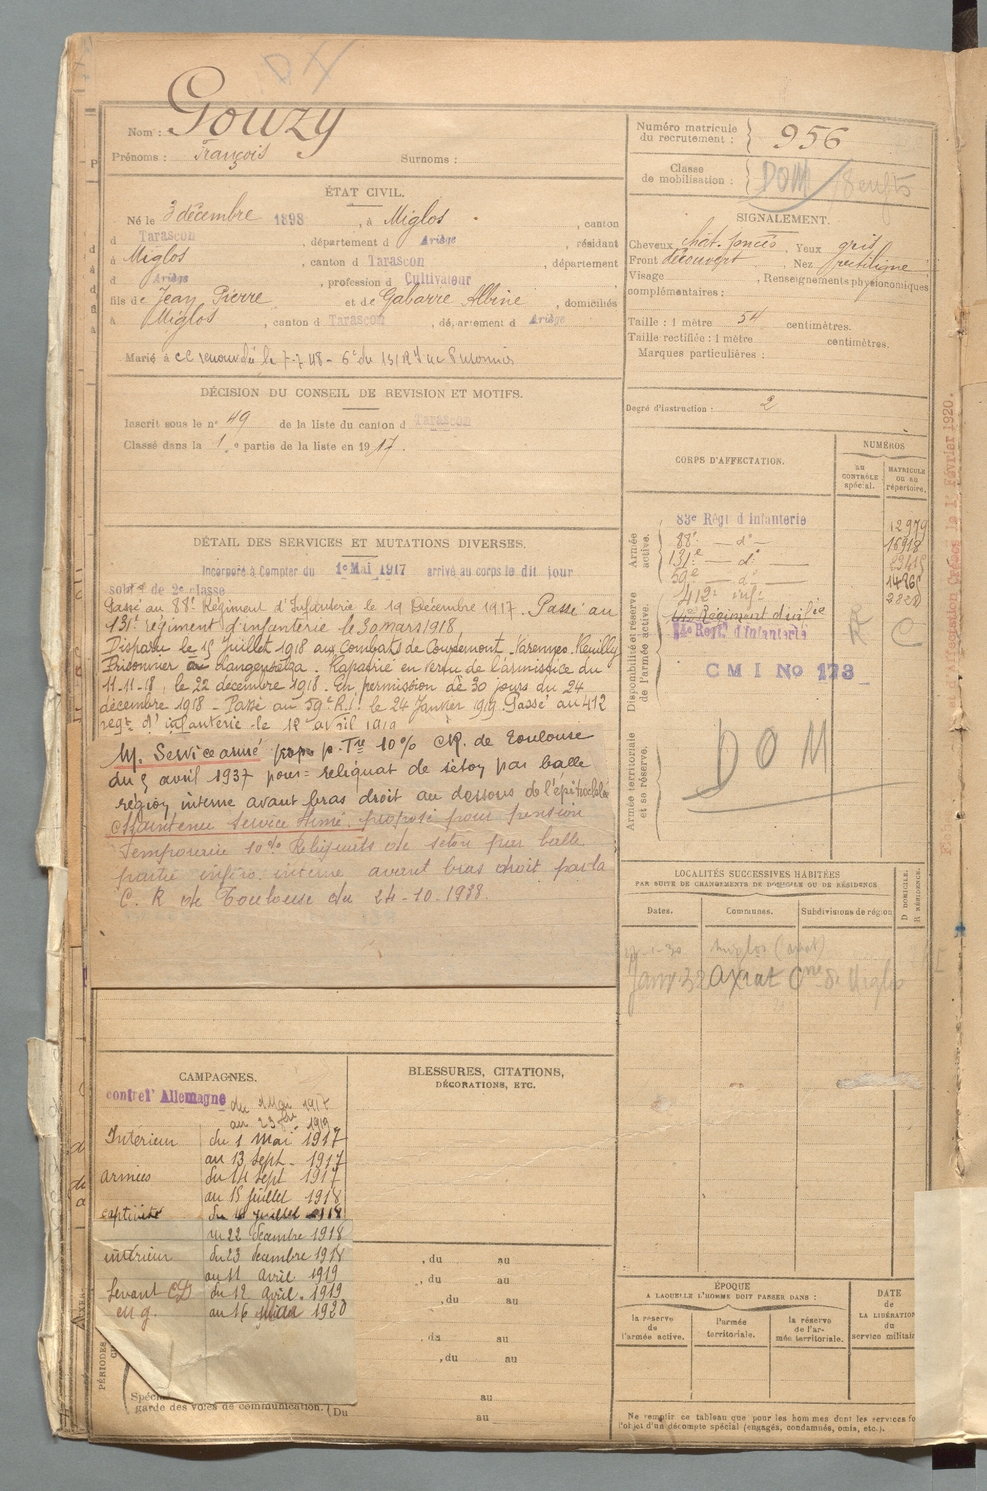 DX
Nom : Gouzy
Prénoms : François Surnoms :
ÉTAT CIVIL.
Né le 3 décembre 1898, à Miglos, canton
d Tarascon, département d Ariège, résidant
à Miglos, canton d Tarascon, département
d Ariège, profession d Cultivateur
fils de Jean Pierre et de Gabarre Albine, domiciliés
à Miglos, canton d Tarascon, département d Ariège
Marié à
DÉCISION DU CONSEIL DE REVISION ET MOTIFS.
Inscrit sous le n° 49 de la liste du canton d Tarascon
Classé dans la 1e partie de la liste en 1917.
DÉTAIL DES SERVICES ET MUTATIONS DIVERSES.
Incorporé à Compter du 1e Mai 1917 arrivé au corps le dit jour
soldt de 2e classe
Passé au 88e Régiment d'Infanterie le 19 Décembre 1917. Passé au
131e régiment d'infanterie le 30 mars 1918.
Disparu le 15 juillet 1918 aux Combats de Courtemont. Varennes. Reuilly
Prisonnier Langensalza. Rapatrié en vertu de l'armistice du
11-11-18, le 22 décembre 1918. En permission de 30 jours du 24
décembre 1918 - Passé au 59e R.I. le 24 Janvier 1919. Passé au 412
regt d'infanterie le 12 avril 1919
M. Service armé propo p. Tre 10% CR. de Toulouse
du 5 avril 1937 pour = reliquat de séton par balle
région interne avant bras droit au dessous de l'épitrochlée
Maintenu Service Armé. proposé pour pension
temporaire 10% Reliquats de séton par balle
partie inféro. interne avant bras droit par la
C. R de Toulouse du 24-10-1938.
CAMPAGNES.
contre l'Allemagne du 1 Mai 1917
au 23 1919
Intérieur du 1 Mai 1917
au 13 Sept. 1917
armées du 14 Sept 1917
au 15 juillet 1918
captivité du juillet 1918
au 22 décembre 1918
intérieur du 23 décembre 1918
au 11 avril 1919
Levant du 12 avril. 1919
en g. au 16 1920
PÉRIODES
Spéci
garde des voies de communication. (Du
BLESSURES, CITATIONS,
DÉCORATIONS, ETC.
, du au
, du au
, du au
, du au
, du au
au
au
Numéro matricule
du recrutement : 956
Classe
de mobilisation : DOM
SIGNALEMENT.
Cheveux chât. foncés, Yeux gris
Front découvert, Nez rectiligne
Visage, Renseignements physionomiques
complémentaires :
Taille : 1 mètre 54 centimètres.
Taille rectifiée : 1 mètre centimètres.
Marques particulières :
Degré d'instruction : 2
CORPS D'AFFECTATION.
NUMÉROS
AU
CONTRÔLE
spécial.
MATRICULE
ou au
répertoire.
Armée
active.
83e Régt d'Infanterie 12979
88e — d° — 15918
131e — d°
59e — d° 14865
412e inf. 2828
Disponibilité et réserve
de l'armée active.
Régiment d'infie R
Regt. d'infanterie R C
C M I No 173
Armée territoriale
et sa réserve.
DOM
LOCALITÉS SUCCESSIVES HABITÉES
PAR SUITE DE CHANGEMENTS DE DOMICILE OU DE RÉSIDENCE
D DOMICILE.
R RÉSIDENCE.
Dates. Communes. Subdivisions de région
miglos (axiat)
Janv 32 Axiat Cne de Miglos
ÉPOQUE
A LAQUELLE L'HOMME DOIT PASSER DANS :
la réserve
de
l'armée active.
l'armée
territoriale.
la réserve
de l'ar-
mée territoriale.
DATE
de
LA LIBÉRATION
du
service militair
Ne remplir ce tableau que pour les hommes dont les services fo
l'objet d'un décompte spécial (engagés, condamnés, omis, etc.).